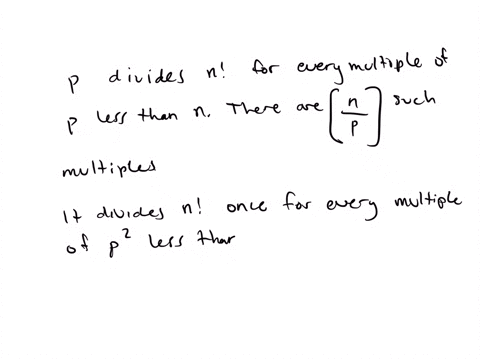 p divides n! for every multiple of
p less than n. There are [n/p] such
multiples
It divides n! once for every multiple
of p² less than